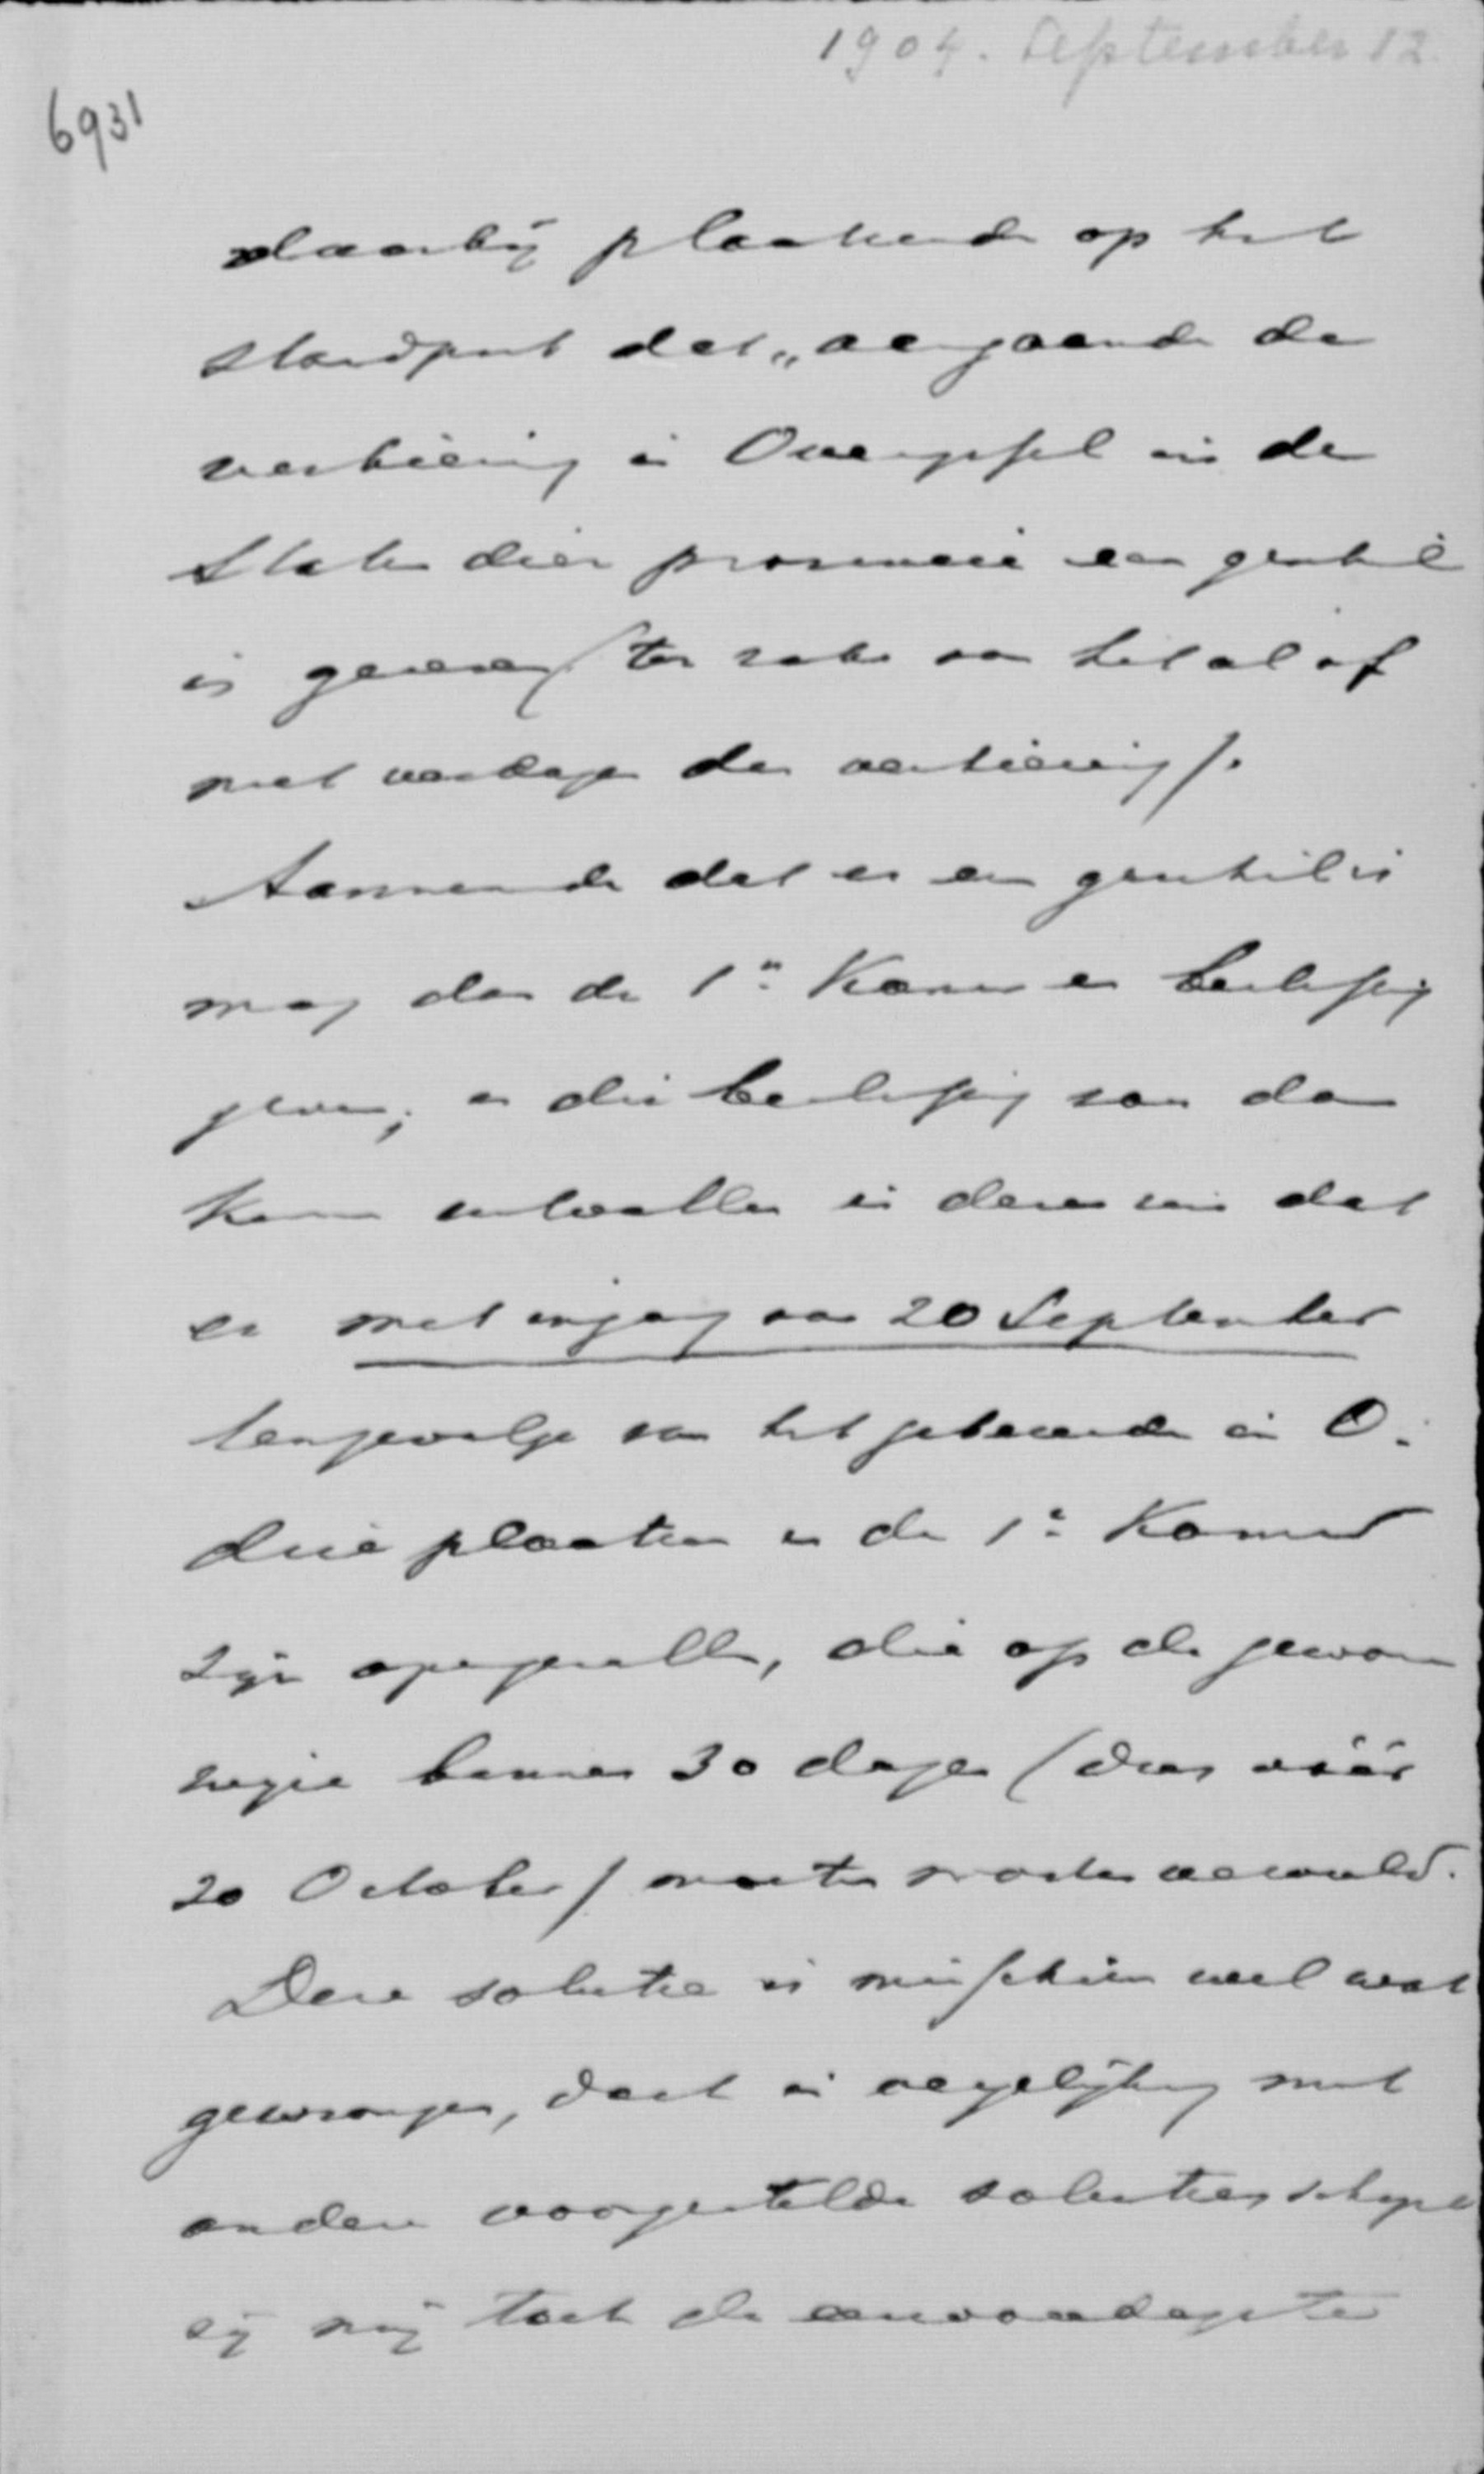 1904. September 12.
6931
daarbij plaatsende op het
standpunt dat „aangaande de
verkiezing in Overijssel in de
Staten dier provincie een geschil
is gerezen (ter zake van het al of
niet der verkiezing).
Aannemende dat er een geschil is
mag dan de 1e Kamer een beslissing
geven; en die beslissing zou dan
kunnen uitvallen in dezen zin dat
er met ingang van 20 September
tengevolge van het gebeurde in O.
drie plaatsen in de 1e Kamer
zijn opengevallen, die op de gewone
wijze binnen 30 dagen (dus vóór
20 October) moeten worden vervuld.
Deze solutie is misschien wel wat
gewrongen, doch in vergelijking met
andere voorgestelde soluties schijnt
zij mij toch de eenvoudigste